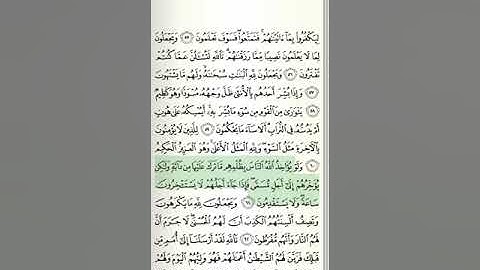 لِيَكْفُرُوا۟ بِمَآ ءَاتَيْنَٰهُمْ ۚ فَتَمَتَّعُوا۟ ۖ فَسَوْفَ تَعْلَمُونَ ٥٥ وَيَجْعَلُونَ
لِمَا لَا يَعْلَمُونَ نَصِيبًا مِّمَّا رَزَقْنَٰهُمْ ۗ تَٱللَّهِ لَتُسْـَٔلُنَّ عَمَّا كُنتُمْ
تَفْتَرُونَ ٥٦ وَيَجْعَلُونَ لِلَّهِ ٱلْبَنَٰتِ سُبْحَٰنَهُۥ ۙ وَلَهُم مَّا يَشْتَهُونَ
٥٧ وَإِذَا بُشِّرَ أَحَدُهُم بِٱلْأُنثَىٰ ظَلَّ وَجْهُهُۥ مُسْوَدًّا وَهُوَ كَظِيمٌ
٥٨ يَتَوَٰرَىٰ مِنَ ٱلْقَوْمِ مِن سُوٓءِ مَا بُشِّرَ بِهِۦٓ ۚ أَيُمْسِكُهُۥ عَلَىٰ هُونٍ
أَمْ يَدُسُّهُۥ فِى ٱلتُّرَابِ ۗ أَلَا سَآءَ مَا يَحْكُمُونَ ٥٩ لِلَّذِينَ لَا يُؤْمِنُونَ
بِٱلْـَٔاخِرَةِ مَثَلُ ٱلسَّوْءِ ۖ وَلِلَّهِ ٱلْمَثَلُ ٱلْأَعْلَىٰ ۚ وَهُوَ ٱلْعَزِيزُ ٱلْحَكِيمُ
٦٠ وَلَوْ يُؤَاخِذُ ٱللَّهُ ٱلنَّاسَ بِظُلْمِهِم مَّا تَرَكَ عَلَيْهَا مِن دَآبَّةٍ وَلَٰكِن
يُؤَخِّرُهُمْ إِلَىٰٓ أَجَلٍ مُّسَمًّى ۖ فَإِذَا جَآءَ أَجَلُهُمْ لَا يَسْتَـْٔخِرُونَ
سَاعَةً ۖ وَلَا يَسْتَقْدِمُونَ ٦١ وَيَجْعَلُونَ لِلَّهِ مَا يَكْرَهُونَ
وَتَصِفُ أَلْسِنَتُهُمُ ٱلْكَذِبَ أَنَّ لَهُمُ ٱلْحُسْنَىٰ ۖ لَا جَرَمَ أَنَّ
لَهُمُ ٱلنَّارَ وَأَنَّهُم مُّفْرَطُونَ ٦٢ تَٱللَّهِ لَقَدْ أَرْسَلْنَآ إِلَىٰٓ أُمَمٍ مِّن
قَبْلِكَ فَزَيَّنَ لَهُمُ ٱلشَّيْطَٰنُ أَعْمَٰلَهُمْ فَهُوَ وَلِيُّهُمُ ٱلْيَوْمَ وَلَهُمْ